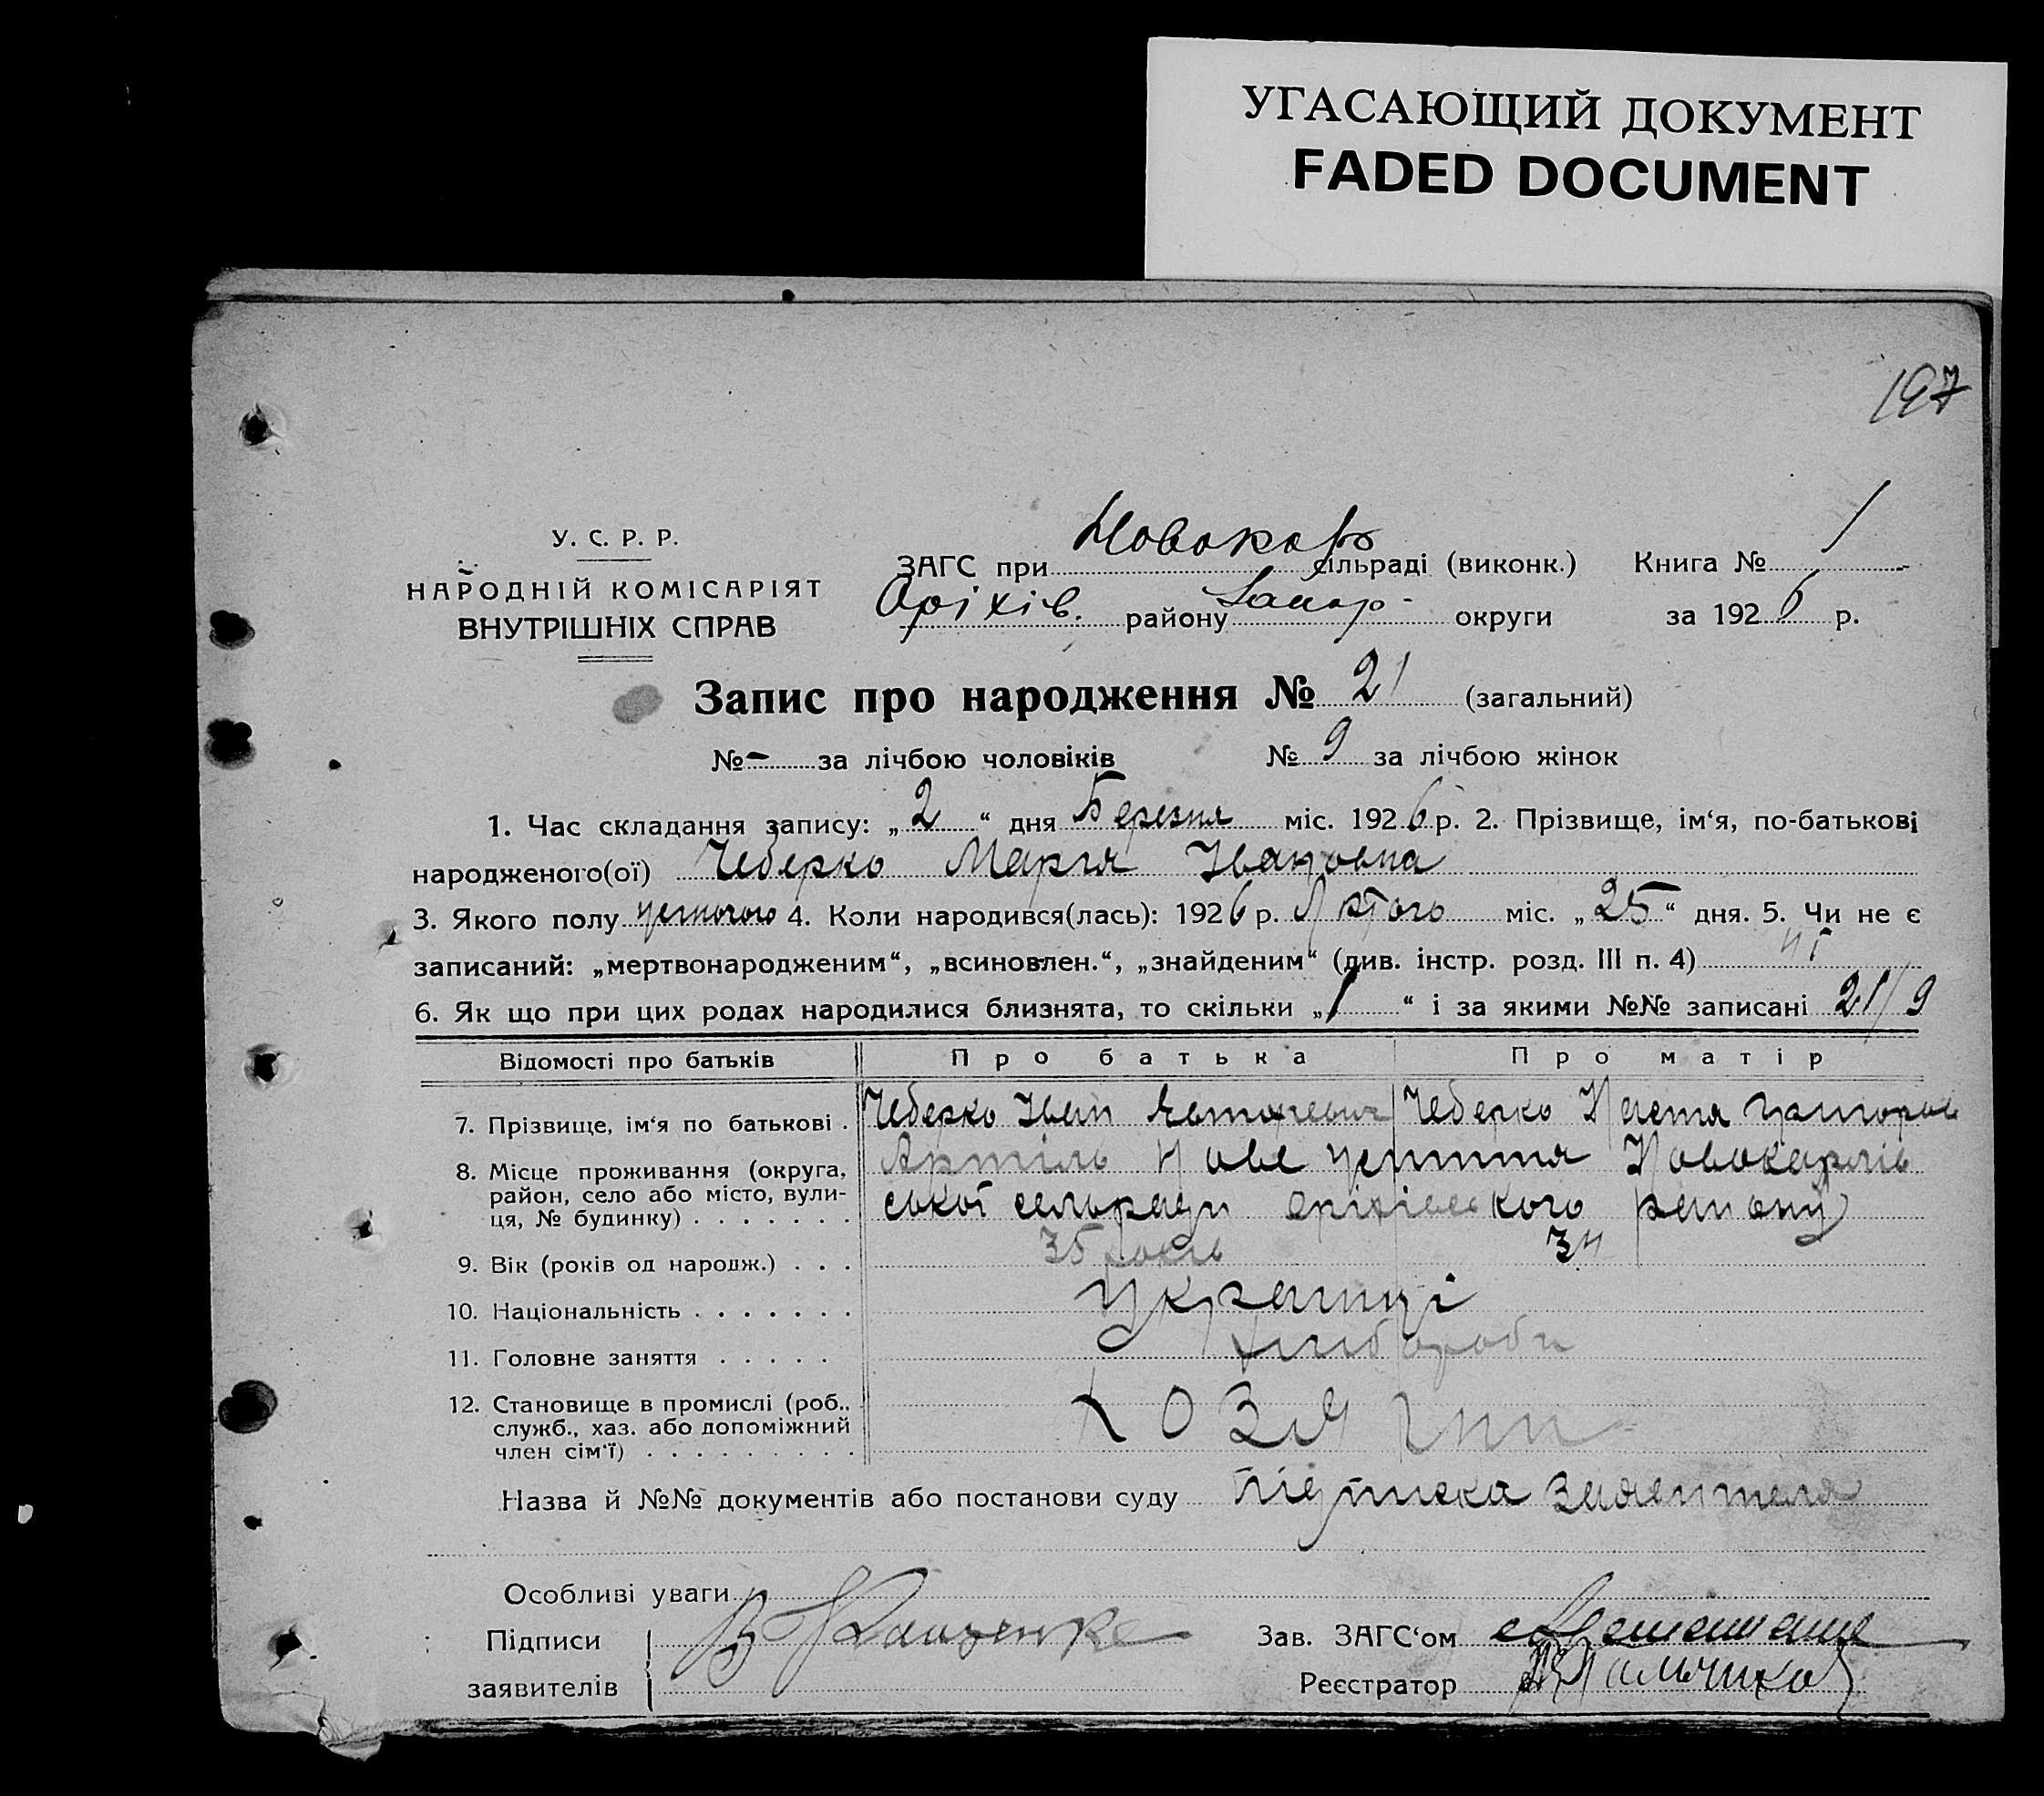 УГАСАЮЩИЙ ДОКУМЕНТ
FADED DOCUMENT
197
У. С. Р. Р.
НАРОДНІЙ КОМІСАРІЯТ
ВНУТРІШНІХ СПРАВ
ЗАГС при Новокар сільраді (виконк.) Книга № 1
Оріхів. району Запор- округи за 1926 р.
Запис про народження № 21 (загальний)
№ - за лічбою чоловіків № 9 за лічбою жінок
1. Час складання запису: „2“ дня Березня міс. 1926 р. 2. Прізвище, ім‘я, по-батькові
народженого(ої) Чеберко Марія Івановна
3. Якого полу жіночого 4. Коли народився(лась): 1926 р. Лютого міс. „25“ дня. 5. Чи не є
записаний: „мертвонародженим“, „всиновлен.“, „знайденим“ (див. інстр. розд. III п. 4) ні
6. Як що при цих родах народилися близнята, то скільки „1“ і за якими №№ записані 21/9
Відомості про батьків Про батька Про матір
7. Прізвище, ім‘я по батькові . Чеберко Іван Чеберко
8. Місце проживання (округа, район, село або місто, вулиця, № будинку) . . . . . . . Артіль Нове життя Новокарлів
ської сельради оріхівського району
9. Вік (років од народж.) . . . 35 років 34
10. Національність . . . . . . . Українці
11. Головне заняття . . . . . хлібороби
12. Становище в промислі (роб., служб., хаз. або допоміжний член сім‘ї) . . . . . . . . . хозяїни
Назва й №№ документів або постанови суду підписка заявителя
Особливі уваги
Підписи
заявителів
Зав. ЗАГС‘ом
Реєстратор